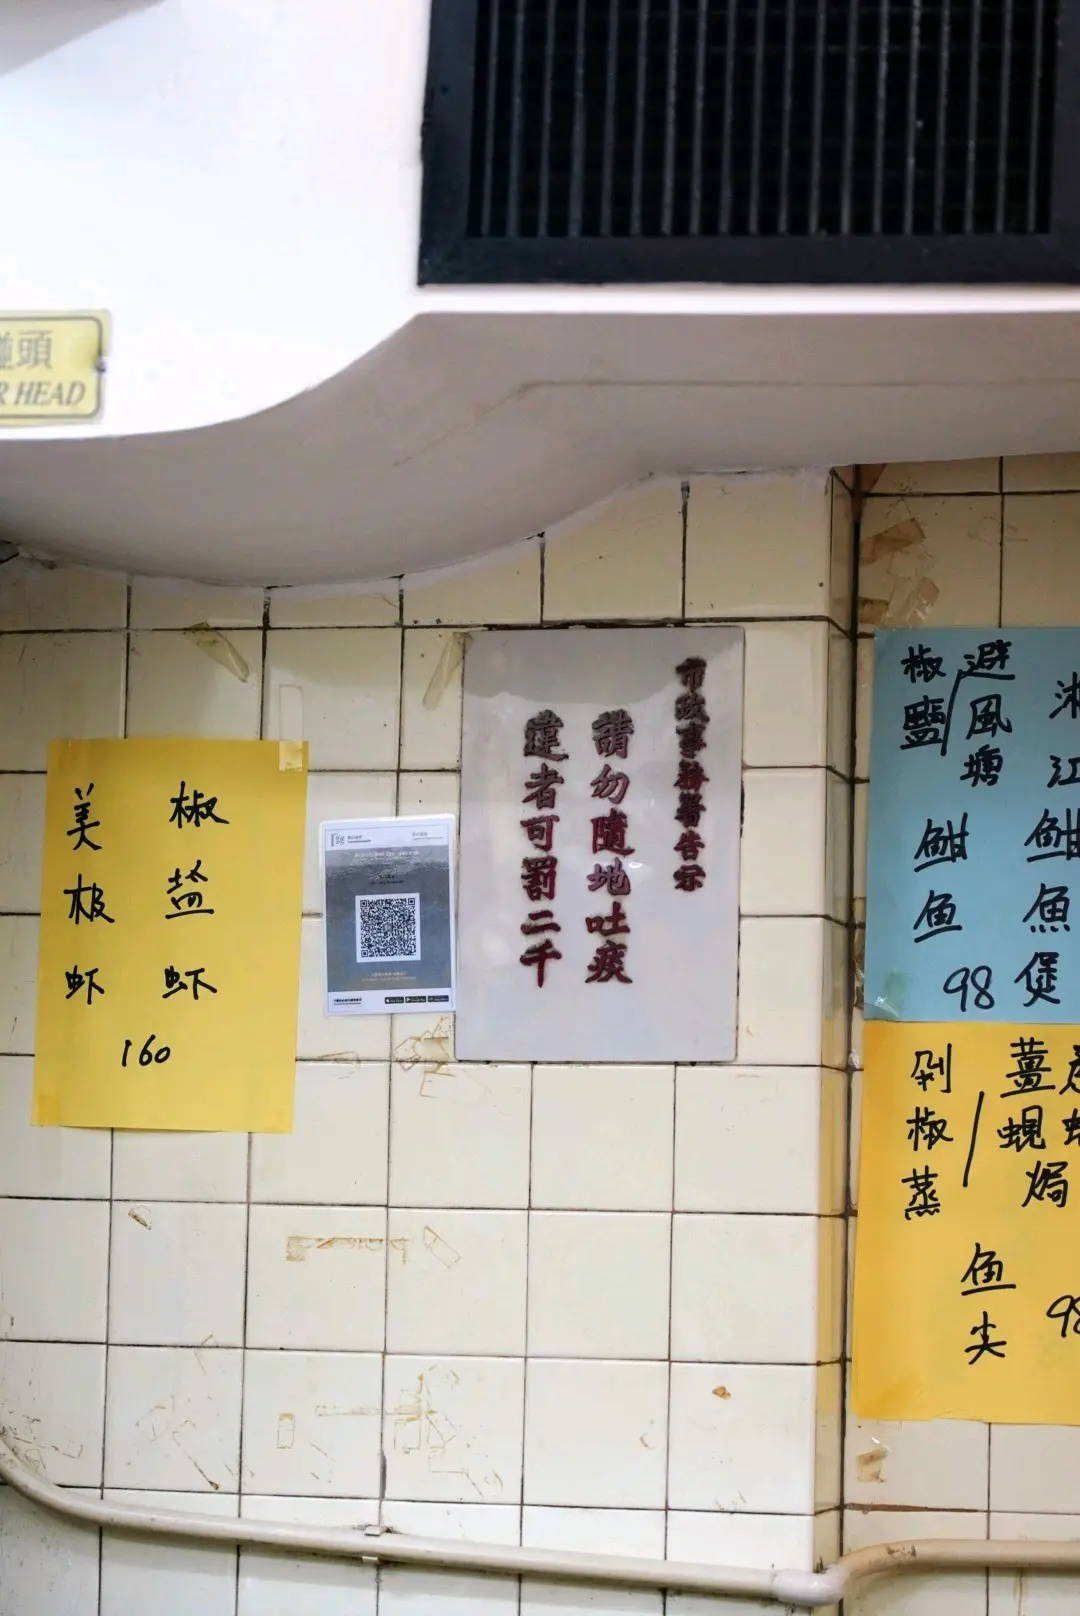 碰頭
R HEAD
市政事務署告示
請勿隨地吐痰
違者可罰二千
椒盐虾
美极虾
160
湘江鮒魚煲
避風塘/
椒鹽
鮒鱼
98
薑蜆焗
/
剁椒蒸
鱼尖
98